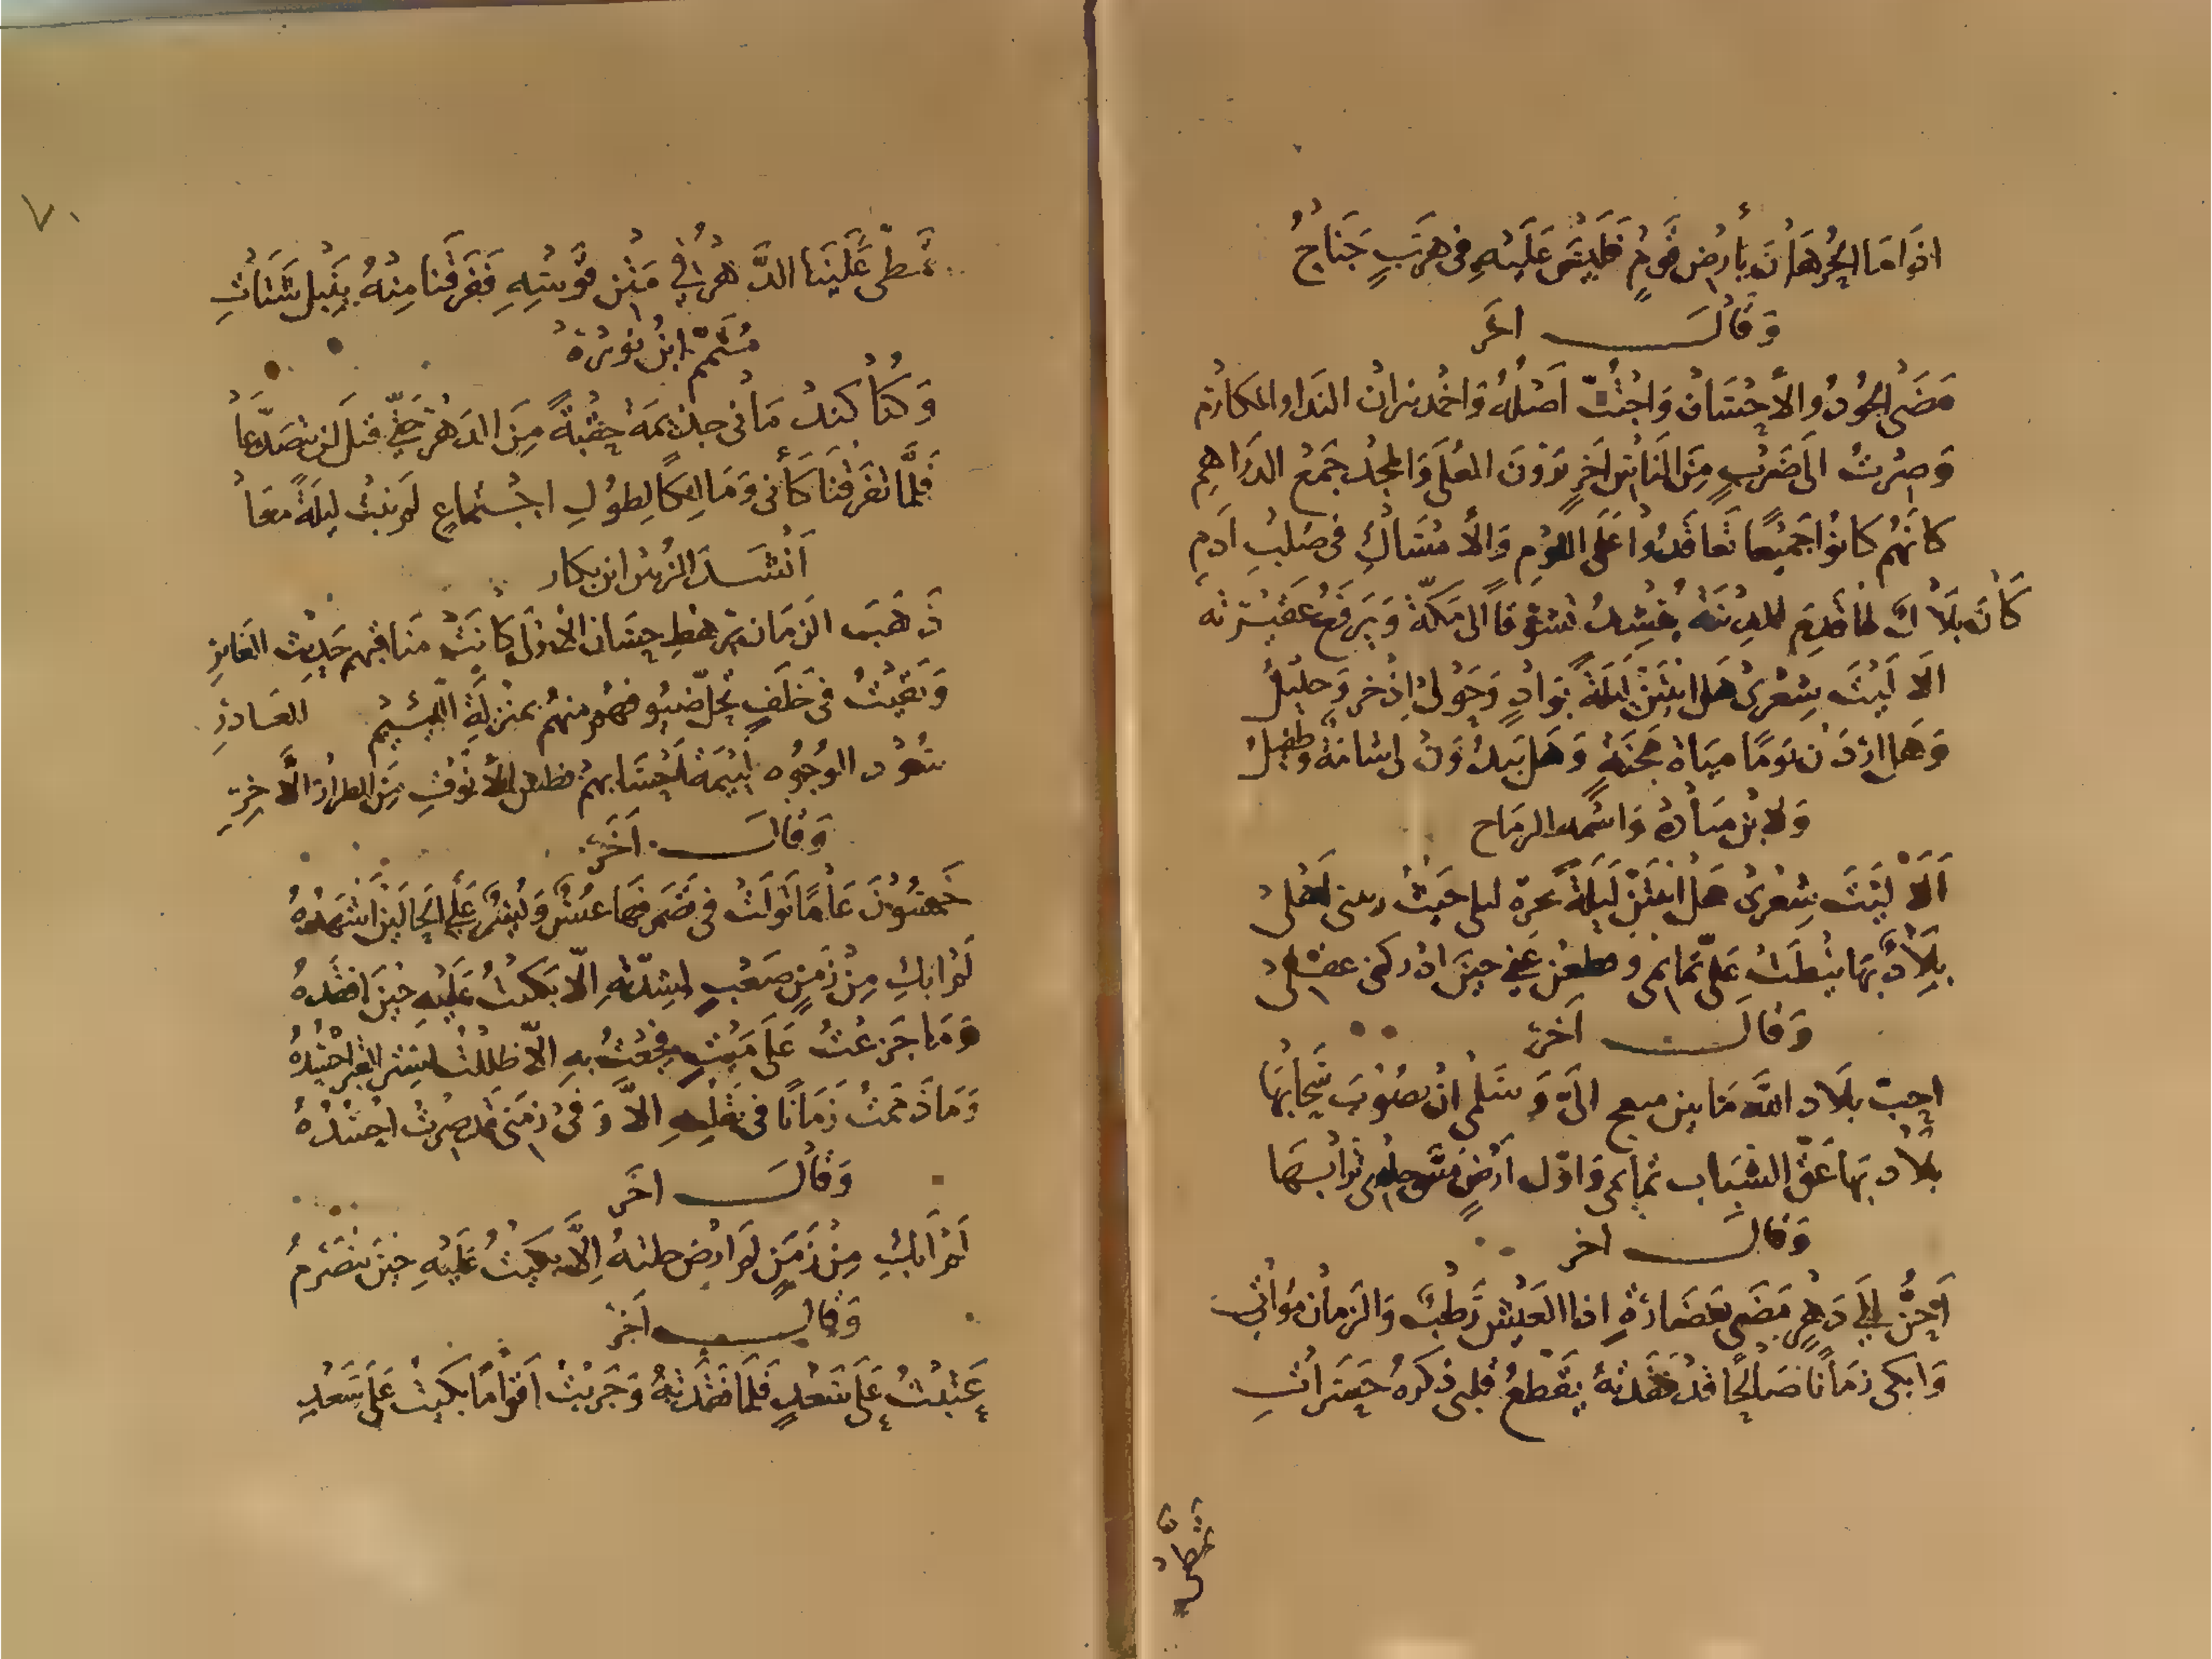 اذا ما الحر هان بأرض قوم فليس عليه فى هرب جناح
وقال اخر
مضى الجود والاحسان واجتث اصله واخمد نيران الندا والمكارم
وصرت الى ضرب من الناس اخر يرون العلى والمجد جمع الدراهم
كانهم كانوا جميعا تعاقدوا على اللوم والامساك فى صلب آدم
كان بلال لما قدم المدينة ينشد تشوقا الى مكة ويرفع عقيرته
الا ليت شعرى هل ابيتن ليلة بواد وحولى اذخر وجليل
وهل اردن يوما مياه مجنة وهل يبدون لى شامة وطفيل
ولابن ميادة واسمه الرماح
الا ليت شعرى هل ابيتن ليلة بحرة ليلى حيث ربتنى اهلى
بلاد بها نيطت على تمايمى وقطعن عنى حين ادركنى عقلى
وقال آخر
احب بلاد الله ما بين منعج الى وسلمى ان يصوب سحابها
بلاد بها عق الشباب تمايمى واول ارض مس جلدى ترابها
وقال اخر
احن الى دهر مضى بغضارة اذا العيش رطب والزمان مؤاتى
وابكى زمانا صالحا قد فقدته يقطع قلبى ذكره حسرات
تمطى
٧٠
تمطى علينا الدهر فى متن قوسه ففرقنا منه بنبل شتات
متمم ابن نويرة
وكنا كندمانى جذيمة حقبة من الدهر حتى قيل لن يتصدعا
فلما تفرقنا كأنى ومالكا لطول اجتماع لم نبت ليلة معا
أنشد الزبير ابن بكار
ذهب الزمان برهط حسان الاولى كانت مناقبهم حديث الغابر
وبقيت فى خلف يحل ضيوفهم منهم بمنزلة اللئيم الغادر
سود الوجوه لئيمة احسابهم فطس الانوف من الطراز الآخر
وقال آخر
خمسون عاما تولت فى تصرفها عسر ويسر على الحالين اشهده
لم ابك من زمن صعب لشدته الا بكيت عليه حين افقده
وما جزعت على ميت فجعت به الا ظللت لستر القبر احسده
وما ذممت زمانا فى تقلبه الا وفى زمنى قد صرت احمده
وقال اخر
لم ابك من زمن لم ارض خلته الا بكيت عليه حين ينصرم
وقال آخر
عتبت على سعد فلما فقدته وجربت اقواما بكيت على سعد